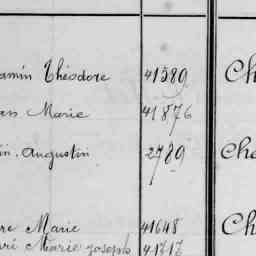 amin Théodore 41589 Ch
Marie 41876
in. Augustin 2789 Che
re Marie 41648 Ch
ré Marie joseph 41717